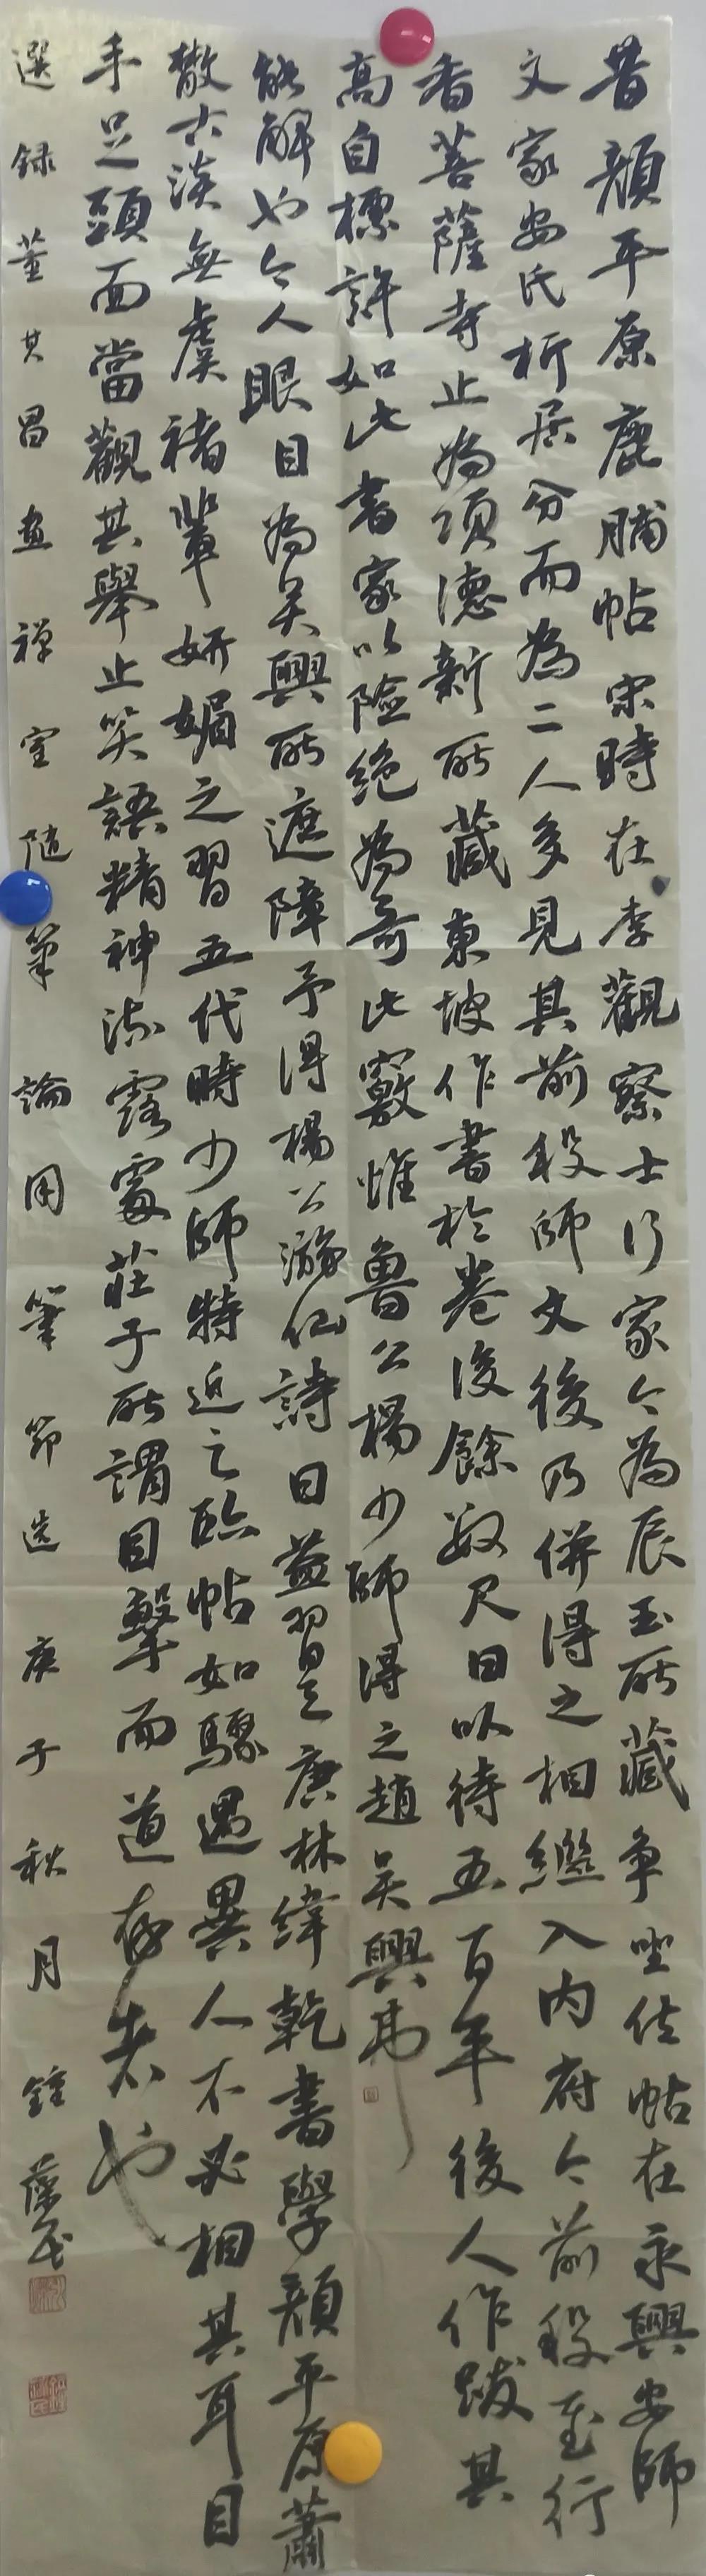 昔顏平原鹿脯帖宋時在李觀察士行家今為辰玉所藏爭坐位帖在永興安師
文家安氏析居分而為二人多見其前段師文後乃併得之相繼入內府今前段至行
香菩薩寺止為項德新所藏東坡作書於卷後餘數尺曰以待五百年後人作跋其
高自標許如此書家以險絕為奇此竅惟魯公楊少師得之趙吳興弗
能解也今人眼目為吳興所遮障予得楊公游仙詩日益習之唐林緯乾書學顏平原蕭
散古淡無虞褚輩妍媚之習五代時少師特近之臨帖如驟遇異人不必相其耳目
手足頭面當觀其舉止笑語精神流露處莊子所謂目擊而道存者也
選録董其昌畫禅室随筆論用筆節选庚子秋月鍾